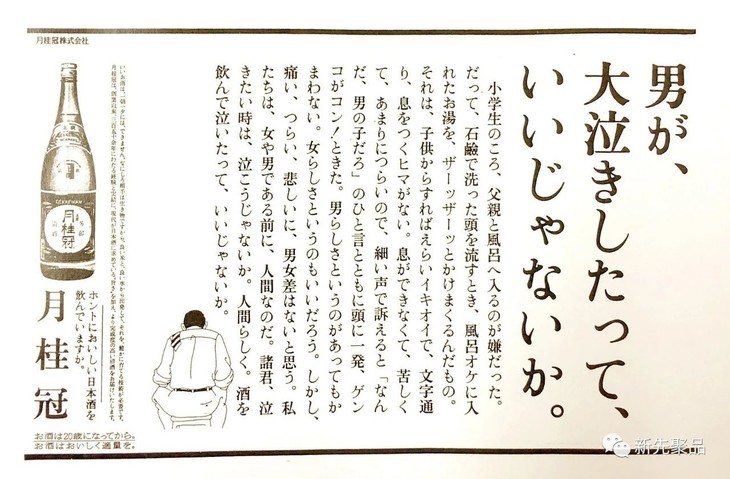 月桂冠株式会社
男が、
大泣きしたって、
いいじゃないか。
小学生のころ、父親と風呂へ入るのが嫌だった。
だって、石鹸で洗った頭を流すとき、風呂オケに入
れたお湯を、ザーッザーッとかけまくるんだもの。
それは、子供からすればえらいイキオイで、文字通
り、息をつくヒマがない。息ができなくて、苦しく
て、あまりにつらいので、細い声で訴えると「なん
だ、男の子だろ」のひと言とともに頭に一発、ゲン
コがコン！ときた。男らしさというのがあってもか
まわない。女らしさというのもいいだろう。しかし、
痛い、つらい、悲しいに、男女差はないと思う。私
たちは、女や男である前に、人間なのだ。諸君、泣
きたい時は、泣こうじゃないか。人間らしく。酒を
飲んで泣いたって、いいじゃないか。
GEKKEIKAN
月桂冠
ホントにおいしい日本酒を
飲んでいますか。
月桂冠
お酒は20歳になってから。
お酒はおいしく適量を。
新先聚品